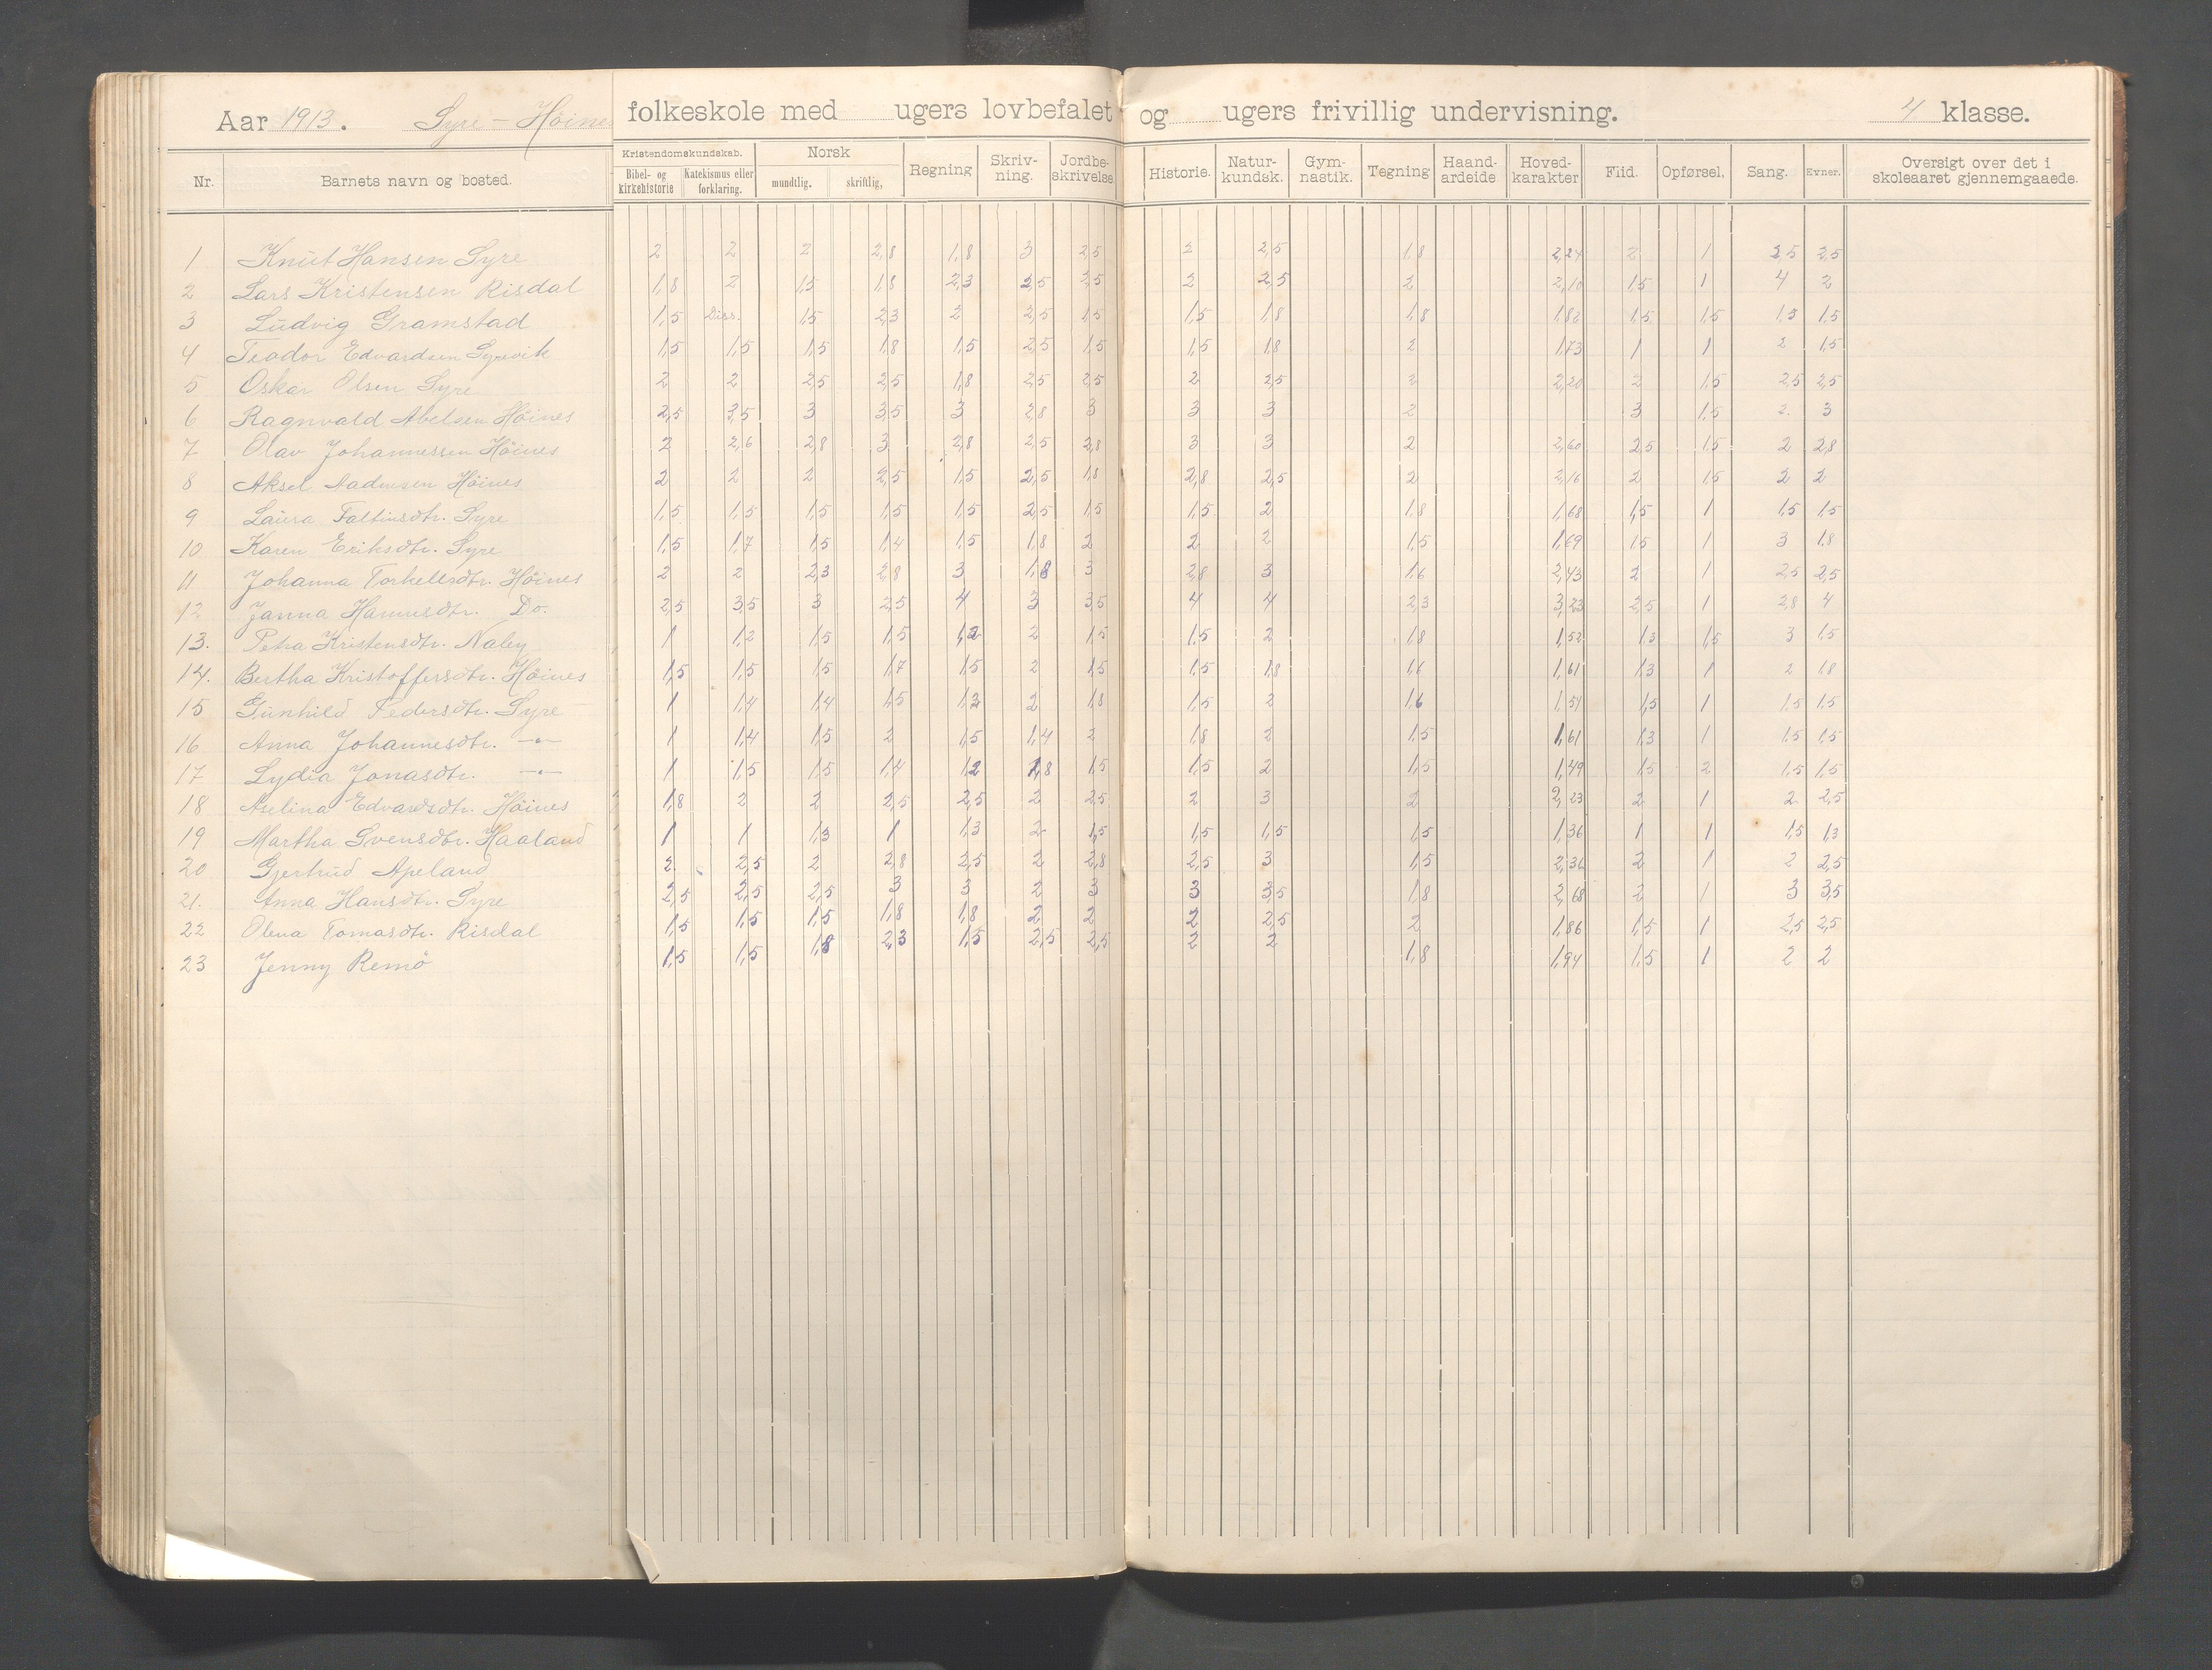 Aar 1913. Syre - Höines folkeskole med ugers lovbefalet og ugers frivillig undervisning. 4 klasse.
Nr. Barnets navn og bosted. Kristendomskundskab. Bibel- og kirkehistorie Katekismus eller forklaring. Norsk mundtlig. skriftlig, Regning Skriv-ning. Jordbe-skrivelse. Historie. Natur-kundsk. Gym-nastik. Tegning Haand-ardeide Hoved-karakter Flid. Opførsel, Sang. Evner. Oversigt over det i skoleaaret gjennemgaaede.
1 Knut Hansen Syre 2 2 2 2,8 1,8 3 2,5 2 2,5 1,8 2,24 2 1 2,5 2,5
2 Lars Kristensen Risdal 1,8 2 1,5 1,8 2,3 2,5 2,5 2 2,5 2 2,10 1,5 1 4 2
3 Ludvig Gramstad 1,5 Diss. 1,5 2,3 2 2,5 1,5 1,5 1,8 1,8 1,82 1,5 1,5 1,5 1,5
4 Teodor Edvardsen Syrevik 1,5 1,5 1,5 1,8 1,5 2,5 1,5 1,5 1,8 2 1,73 1 1 2 1,5
5 Oskar Olsen Syre 2 2 2,5 2,5 1,8 2,5 2,5 2 2,5 2 2,20 2 1,5 2,5 2,5
6 Ragnvald Abelsen Höines 2,5 3,5 3 3,5 3 2,8 3 3 3 2 3 1,5 2 3
7 Olav Johannessen Höines 2 2,6 2,8 3 2,8 2,5 2,8 3 3 2 2,60 2,5 1,5 2 2,8
8 Aksel Aadnesen Höines 2 2 2 2,5 1,5 2,5 1,8 2,8 2,5 2 2,16 2 1,5 2 2
9 Laura Faltinsdtr. Syre 1,5 1,5 1,5 1,5 1,5 2,5 1,5 1,5 2 1,8 1,68 1,5 1 1,5 1,5
10 Karen Eriksdtr. Syre 1,5 1,7 1,5 1,4 1,5 1,8 2 2 2 1,5 1,69 1,5 1 3 1,8
11 Johanna Torkellsdtr. Höines 2 2 2,3 2,8 3 1,8 3 2,8 3 1,6 2,43 2 1 2,5 2,5
12 Janna Hannesdtr. Do. 2,5 3,5 3 2,5 4 3 3,5 4 4 2,3 3,23 2,5 1 2,8 4
13. Petra Kristensdtr. Naley 1 1,2 1,5 1,5 1,2 2 1,5 1,5 2 1,8 1,52 1,3 1,5 3 1,5
14. Bertha Kristoffersdtr. Höines 1,5 1,5 1,5 1,7 1,5 2 1,5 1,5 1,8 1,6 1,61 1,3 1 2 1,8
15 Gunhild Pedersdtr. Syre 1 1,4 1,4 1,5 1,2 2 1,8 1,5 2 1,6 1,54 1,5 1 1,5 1,5
16 Anna Johannesdtr. -"- 1 1,4 1,5 2 1,5 1,4 2 1,8 2 1,5 1,61 1,3 1 1,5 1,5
17 Lydia Jonasdtr. -"- 1 1,5 1,5 1,4 1,2 1,8 1,5 1,5 2 1,5 1,49 1,5 2 1,5 1,5
18 Aselina Edvardsdtr. Höines 1,8 2 2 2,5 2,5 2 2,5 2 3 2 2,23 2 1 2 2,5
19 Martha Svensdtr. Haaland 1 1 1,3 1 1,3 2 1,5 1,5 1,5 1,5 1,36 1 1 1,5 1,3
20 Gjertrud Apeland 2 2,5 2 2,8 2,5 2 2,8 2,5 3 1,5 2,36 2 1 2 2,5
21. Anna Hansdtr. Syre 2,5 2,5 2,5 3 3 2 3 3 3,5 1,8 2,68 2 1 3 3,5
22 Olena Tomasdtr. Risdal 1,5 1,5 1,5 1,8 1,8 2 2 2 2,5 2 1,86 1,5 1 2,5 2,5
23 Jenny Remö 1,5 1,5 1,8 2,3 1,5 2,5 2,5 2 2 1,8 1,94 1,5 1 2 2